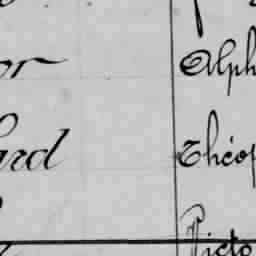 or Alph
ard Théop
Victo